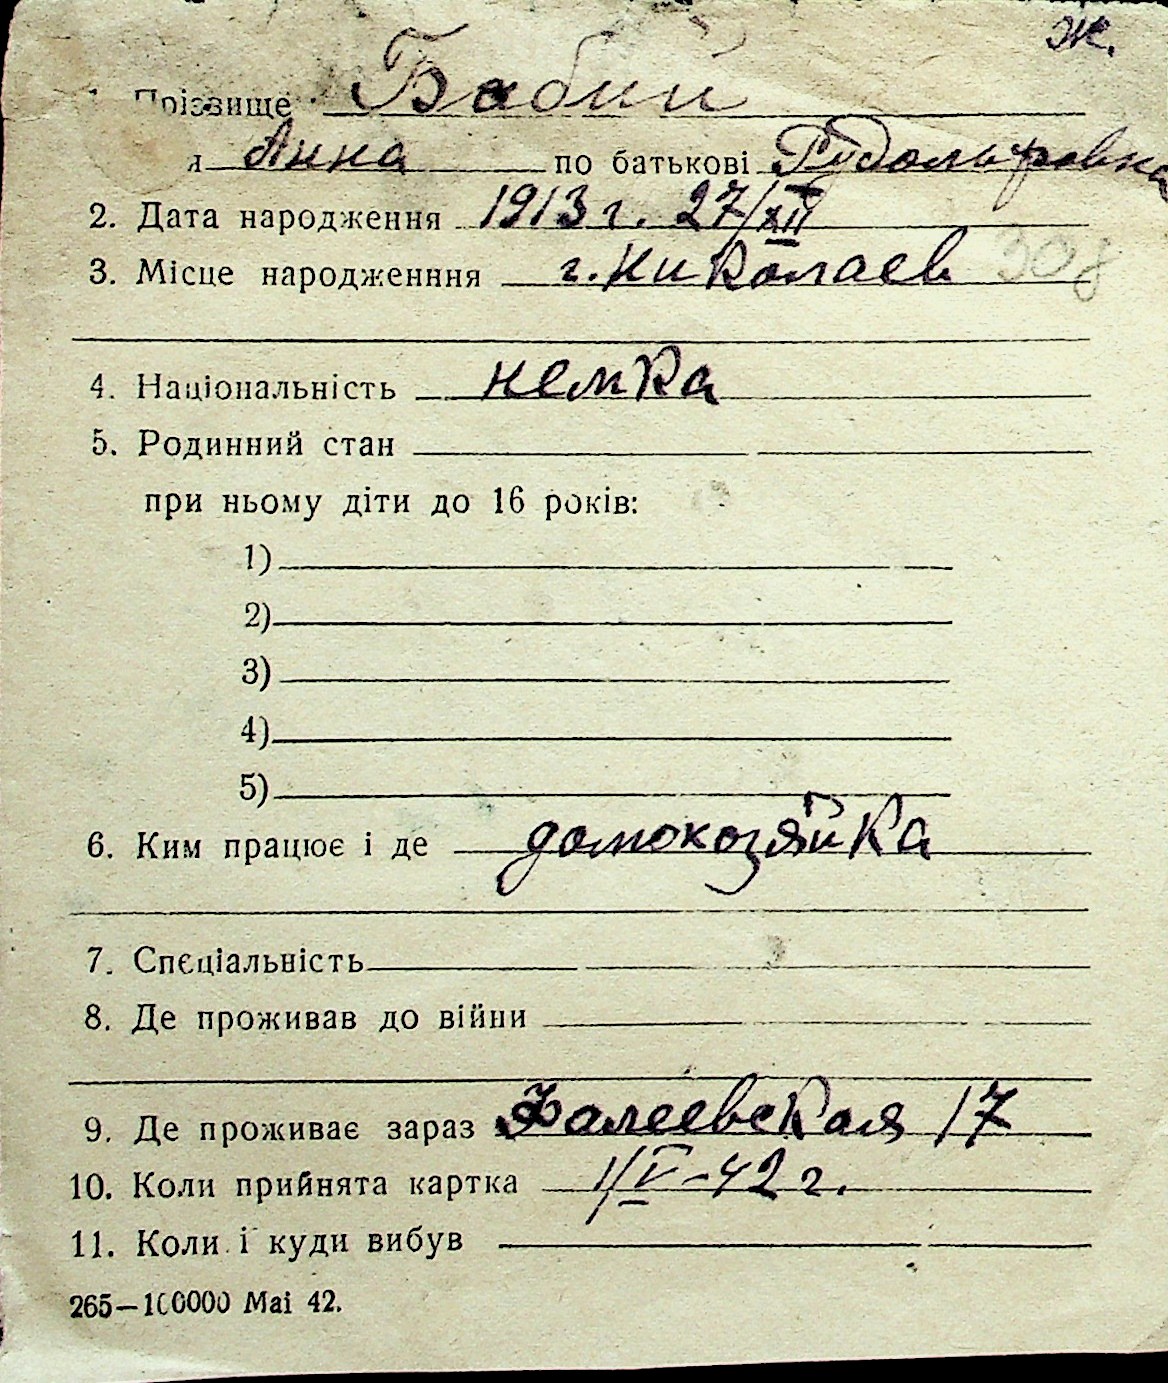 ж.
Прізвище Бабий
я Анна по батькові Рудольфовна
2. Дата народження 1913 г. 27/XII
3. Місце народженння г. Николаев 308
4. Національність немка
5. Родинний стан
при ньому діти до 16 років:
1)
2)
3)
4)
5)
6. Ким працює і де домохозяйка
7. Спеціальність
8. Де проживав до війни
9. Де проживає зараз Фалеевская 17
10. Коли прийнята картка 1/V-42 г.
11. Коли і куди вибув
265—100000 Mai 42.